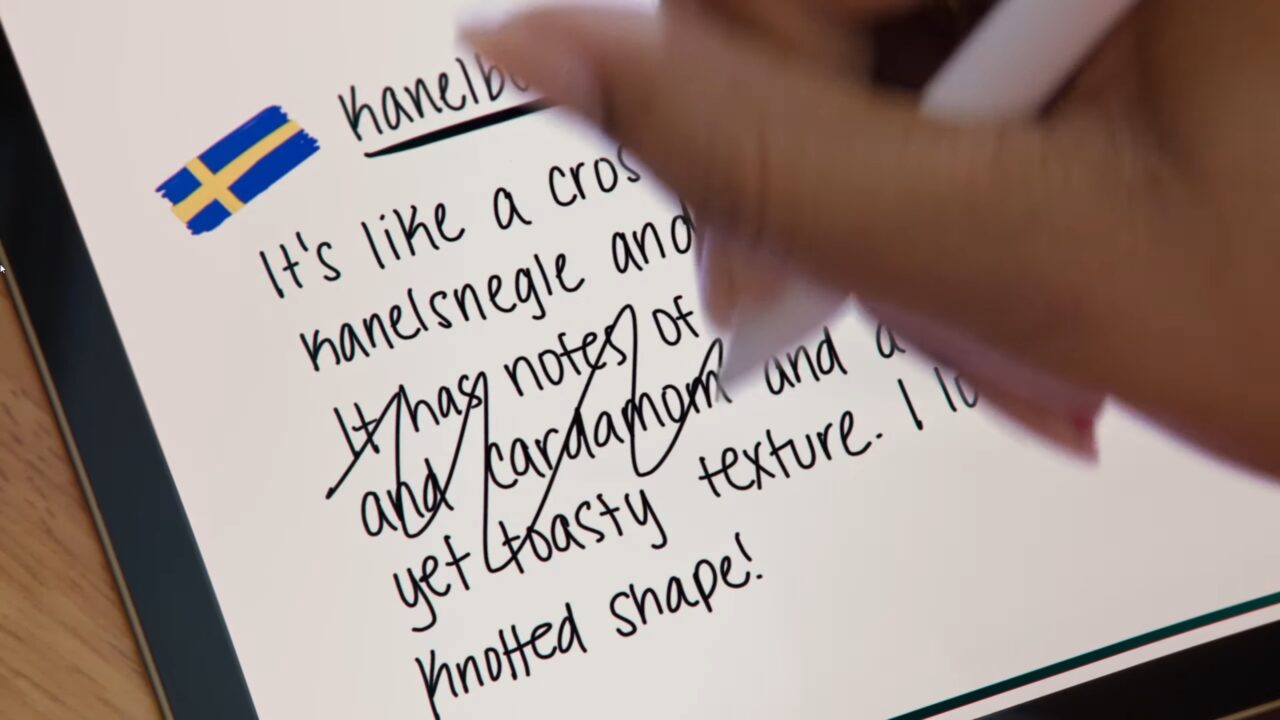 It's like a
kanelsnegle and
It has notes of
and cardamom and
yet toasty texture. I
knotted shape!